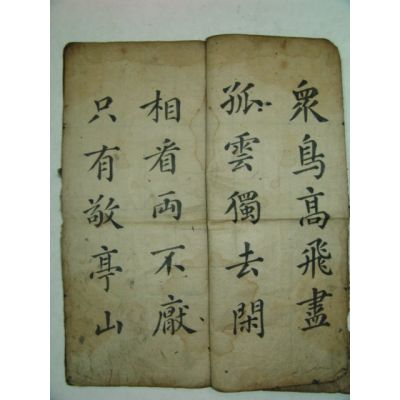 衆鳥高飛盡
孤雲獨去閑
相看両不厭
只有敬亭山